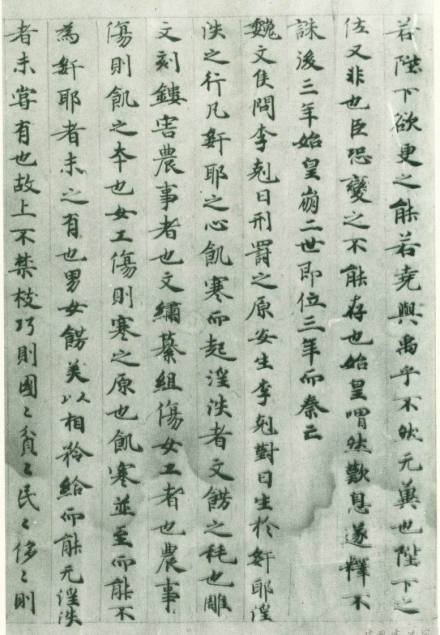 若陛下欲更之能若堯與禹乎不然无冀也陛下之
佐又非也臣恐變之不能存也始皇喟然歎息遂釋不
誅後三年始皇崩二世即位三年而秦亡
魏文侯問李剋曰刑罰之原安生李剋對曰生於姧耶淫
泆之行凡姧耶之心飢寒而起淫泆者文餝之秏也雕
文刻鏤害農事者也文繡綦組傷女工者也農事
傷則飢之夲也女工傷則寒之原也飢寒並至而能不
為姧耶者未之有也男女餝美以相矜給而能无淫泆
者未甞有也故上不禁枝巧則國〻貧〻民〻侈〻則